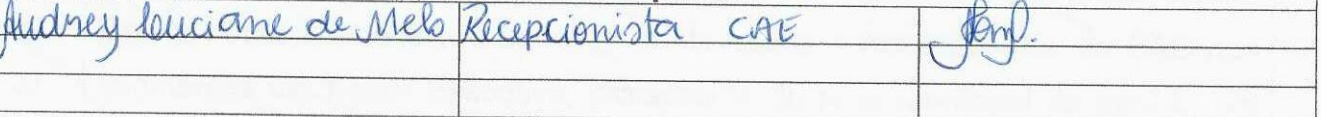 Audrey Louciane de Melo Recepcionista CAE